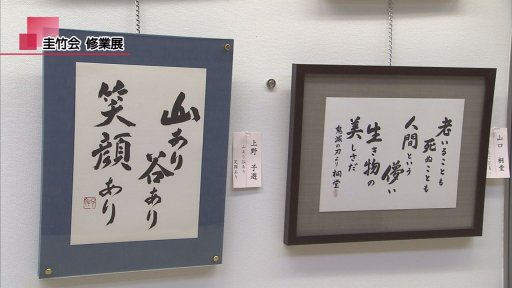 圭竹会 修業展
山あり
谷あり
笑顔あり
上野 予遊
山あり谷あり
笑顔あり
老いることも
死ぬことも
人間という
儚い
生き物の
美しさだ
鬼滅の刃より 桐堂
山口 桐堂